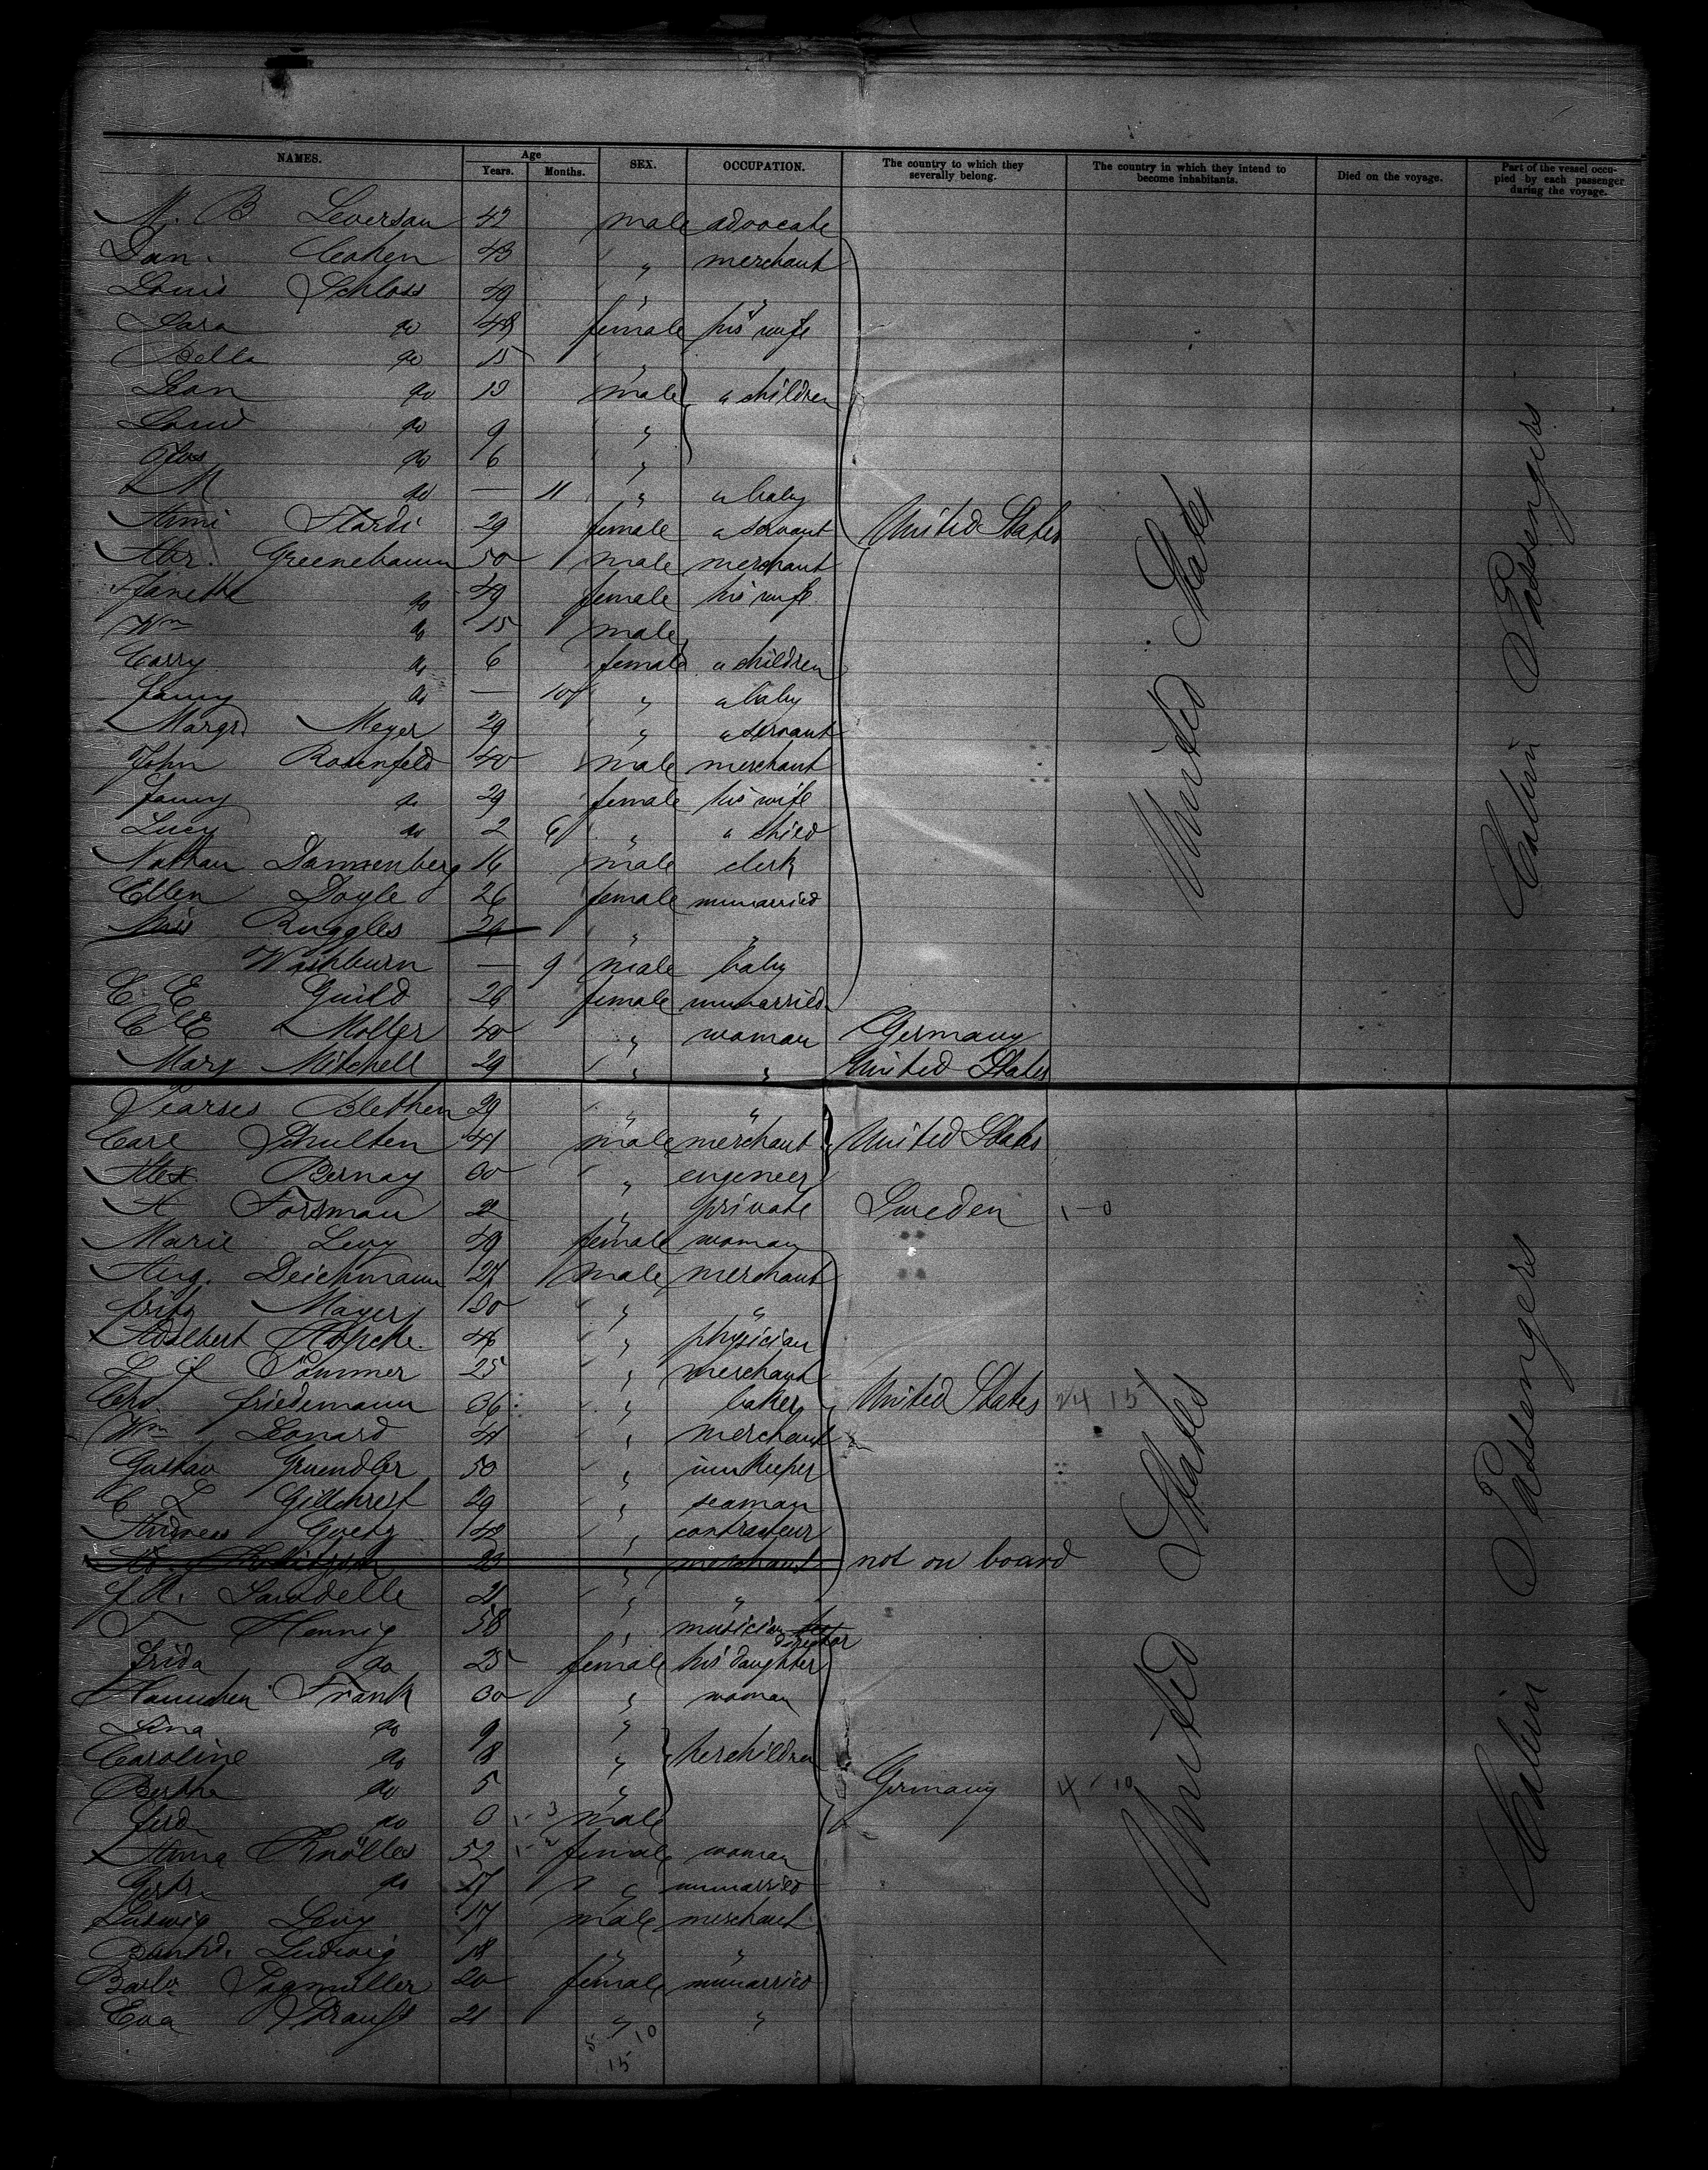 NAMES. Age Years. Months. SEX. OCCUPATION. The country to which they severally belong. The country in which they intend to become inhabitants. Died on the voyage. Part of the vessel occupied by each passenger during the voyage.
M. B Leverson 42 male advocate
Dan. Cohen 43 " merchant
Louis Schloss 49 " "
Sara do 48 female his wife
Bella do 15 "
Leon do 13 male " children
Louis do 9 "
Jos do 6 "
M do — 11 " " baby
Anni Stardi 29 female " servant United States
Abr. Greenebaum 50 male merchant
Janette do 49 female his wife
Wm do 15 male
Carry do 6 female " children
Fanny do — 10 " " baby
Margr. Meyer 29 " " servant
John Rosenfeld 40 male merchant
Fanny do 29 female his wife
Lucy do 2 6 " " child
Nathan Dannenberg 16 male clerk
Ellen Doyle 26 female unmarried
Miss Ruggles 26 " "
Washburn — 9 male baby
C E Guild 26 female unmarried
Moller 40 " woman Germany
Mary Mitchell 29 " " United States
United States
Cabin Passengers
Pearses Blethen 29 " "
Carl Schulten 41 male merchant United States
Alex Bernay 30 " engeneer
A Forsman 22 " private Sweden 1-0
Marie Levy 49 female woman
Aug. Deichmann 27 male merchant
Fritz Mayer 30 " "
Adalbert 46 " physician
L Sommer 25 " merchant
Chr. Friedemann 36 " baker United States 24 15
Wm Leonard 41 " merchant
Gustav Gruendler 50 " innkeeper
C L Gillchrest 29 " seaman
Andreas Goetz 48 " contracteur
23 " merchant not on board
Landelle 21 " "
F Hennig 58 " musician director
Frida do 25 female his daughter
Hannchen Frank 30 " woman
Lina do 9 "
Caroline do 8 " her children
Bertha do 5 " Germany 4 10
Ferd. do 3 male
Anna Knöller 52 female woman
Gertr. do 17 " unmarried
Ludwig Levy 17 male merchant
Ludwig 18 " "
Barb. Sagmüller 20 female unmarried
Eva Strauß 21 " "
5 10
15
United States
Cabin Passengers